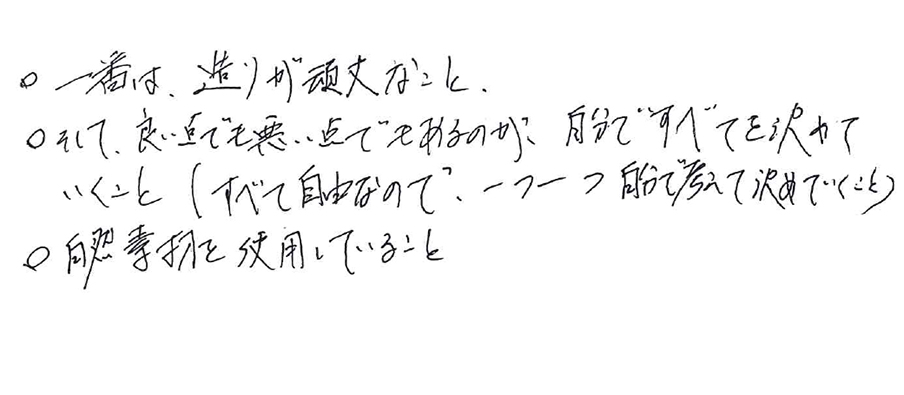 ○ 一番は、造りが頑丈なこと、
○ そして、良い点でも悪い点でもあるのが、自分ですべてを決めて
いくこと（すべて自由なので、一つ一つ自分で考えて決めていくこと）
○ 自然素材を使用していること